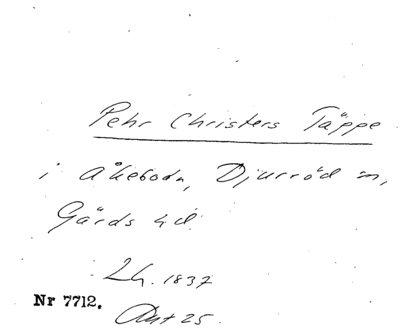 Pehr Christers Täppe
i Åkeboda, Djurröd sn,
Gärds hd.
Lh. 1837
Nr 7712.
Art 25.